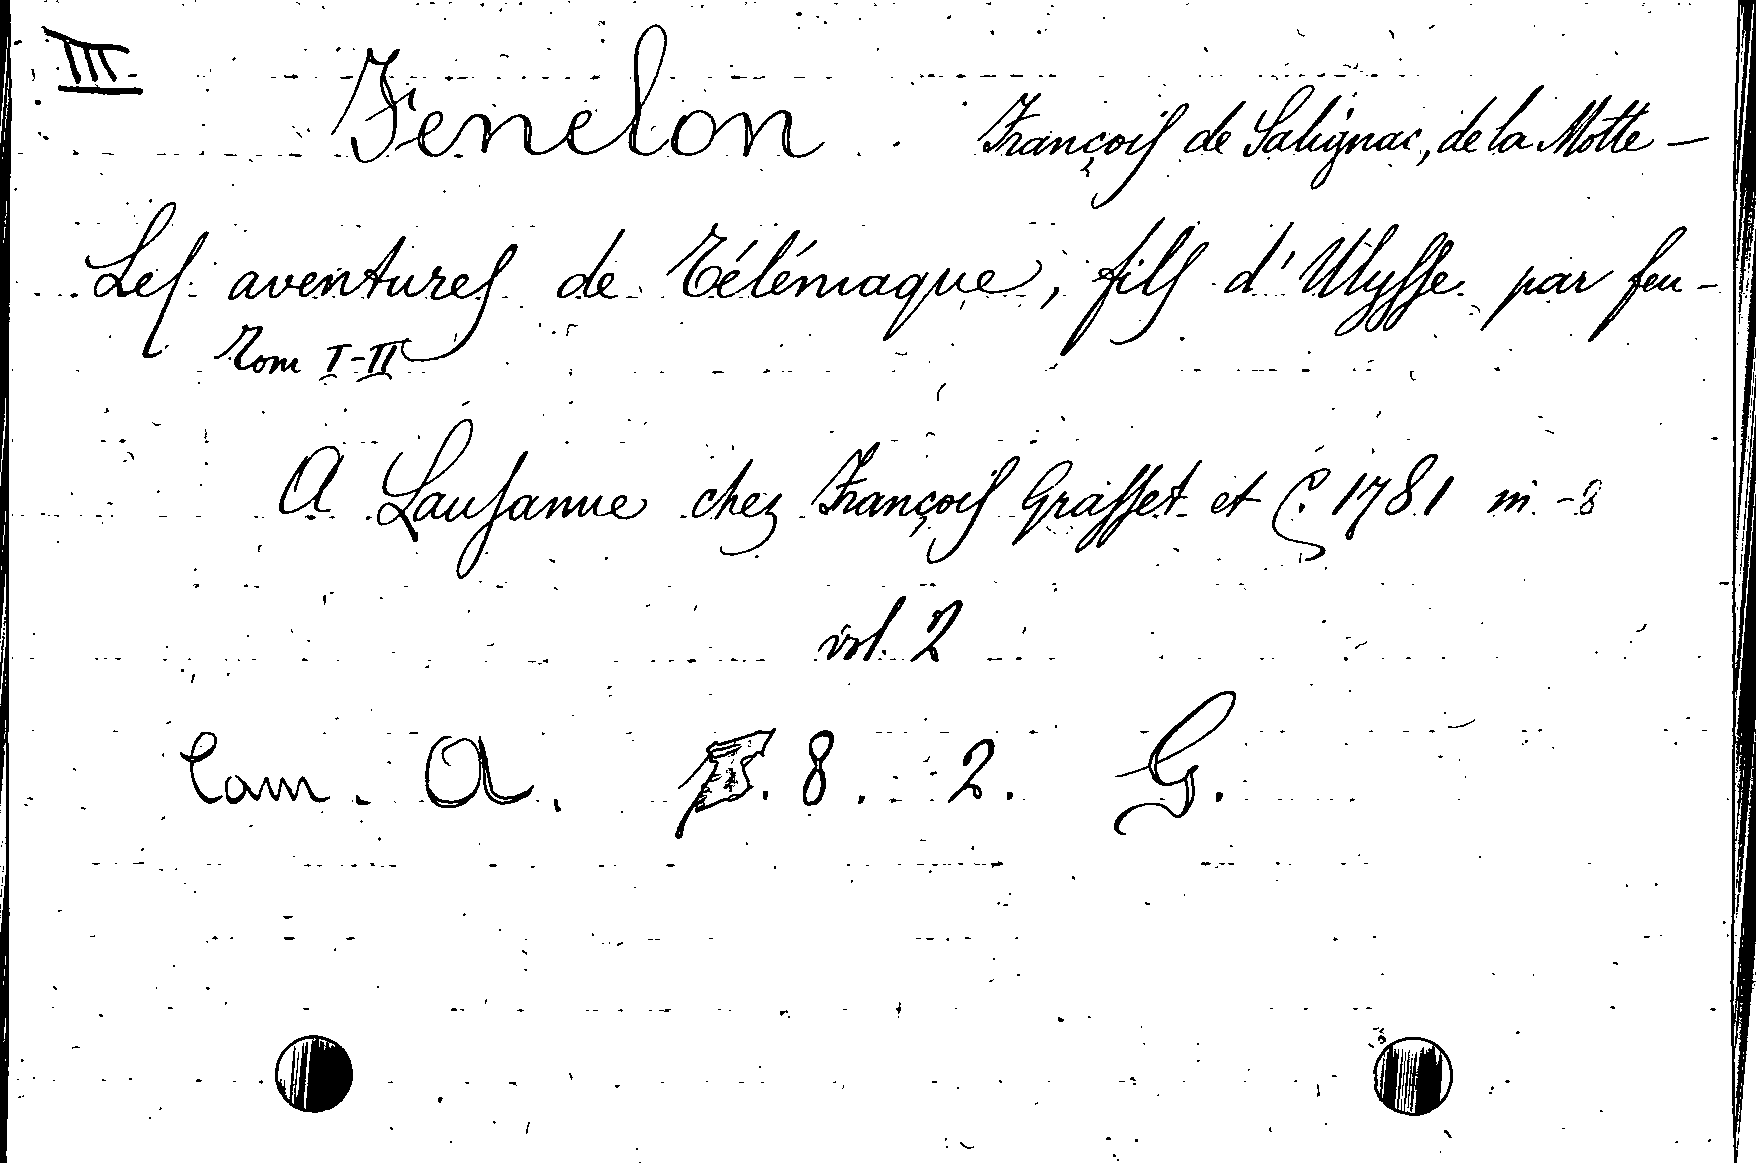 III.
Fenelon François de Salignac, de la Motte -
Les aventures de Télémaque, fils d'Ulysse par feu -
Tom I-II
A Lausanne chez François Grasset et C. 1781 in -8
vol. 2
Cam. A. 8. 2. G.